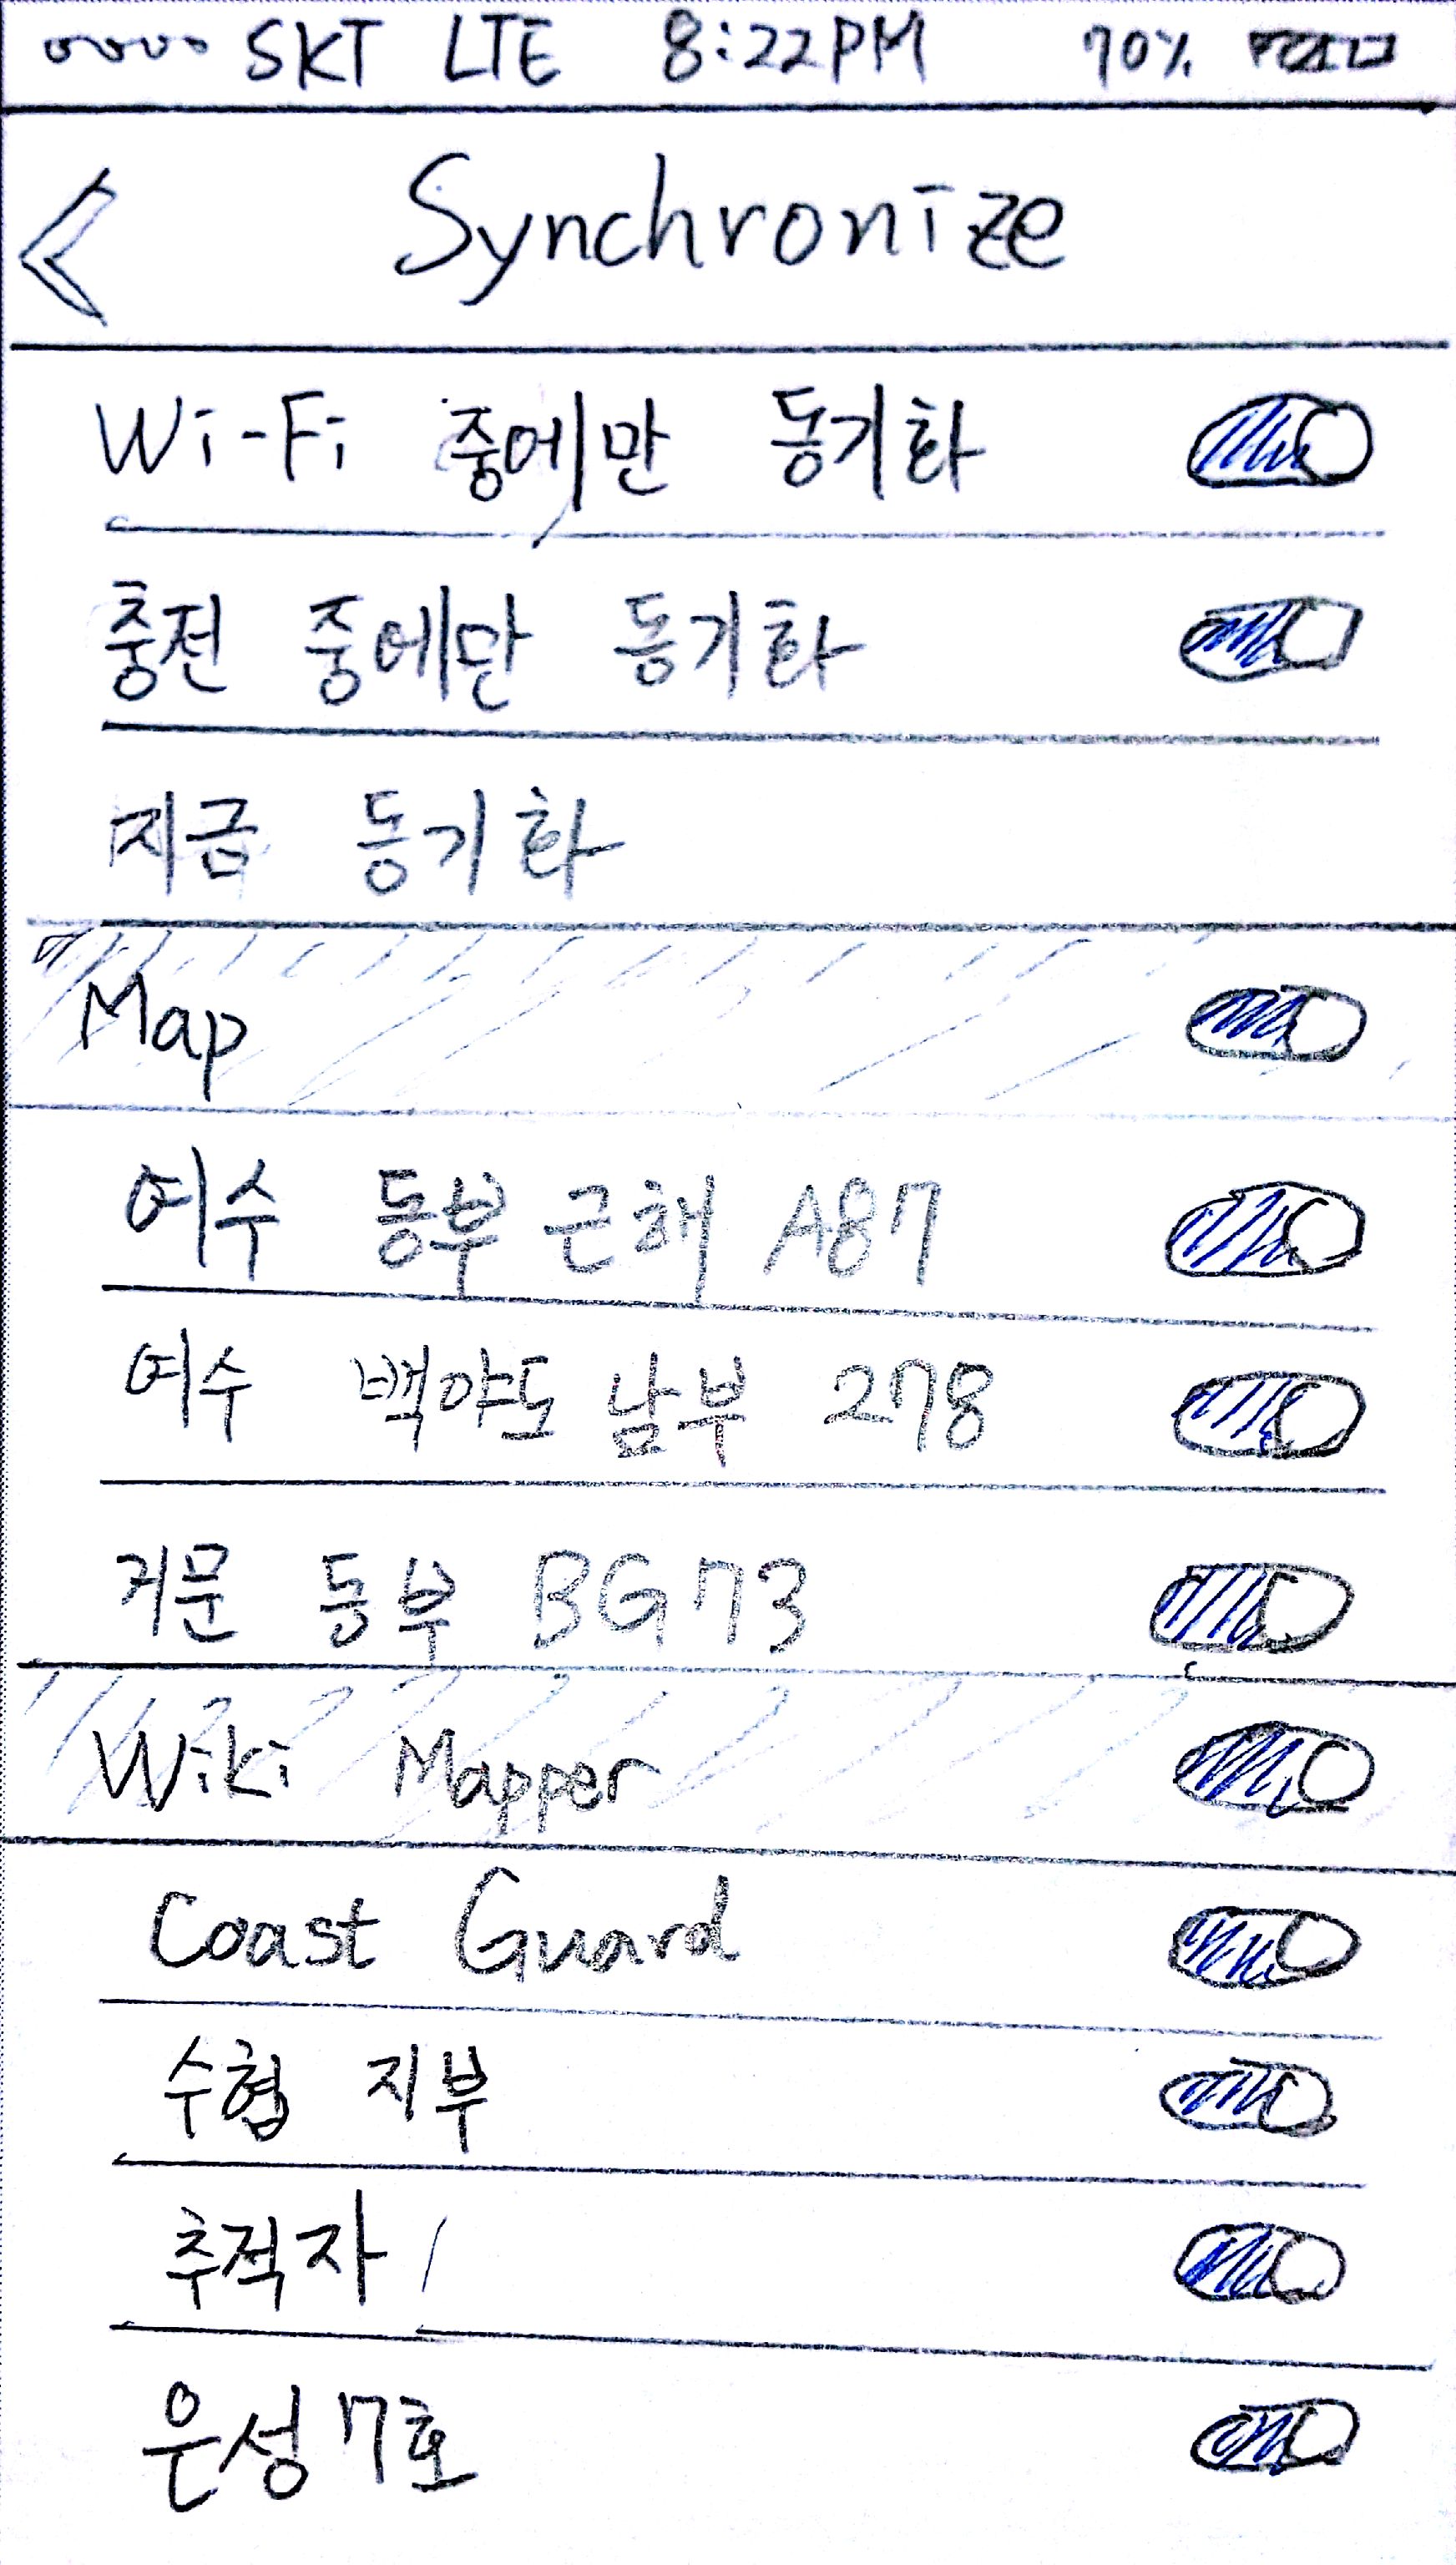 SKT LTE 8:22PM 70%
Synchronize
Wi-Fi 중에만 동기화
충전 중에만 동기화
지금 동기화
Map
여수 동부 근해 A87
여수 백야도 남부 278
거문 동부 BG73
Wiki Mapper
Coast Guard
수협 지부
추적자
은성 7호